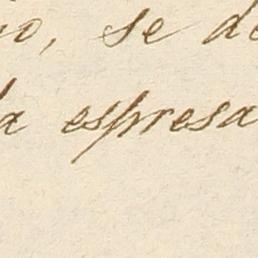 no, se de
la espresa